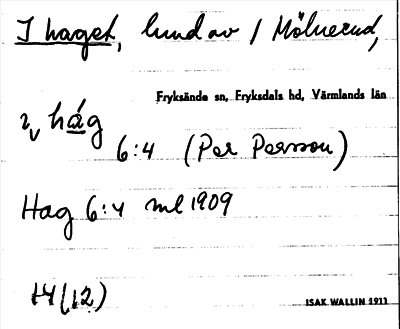 I haget, lund av / Mölnerud,
Fryksände sn, Fryksdals hd, Värmlands län
hág
6:4 (Per Persson)
Hag 6:4 ml 1909
14 (12)
ISAK WALLIN 1911